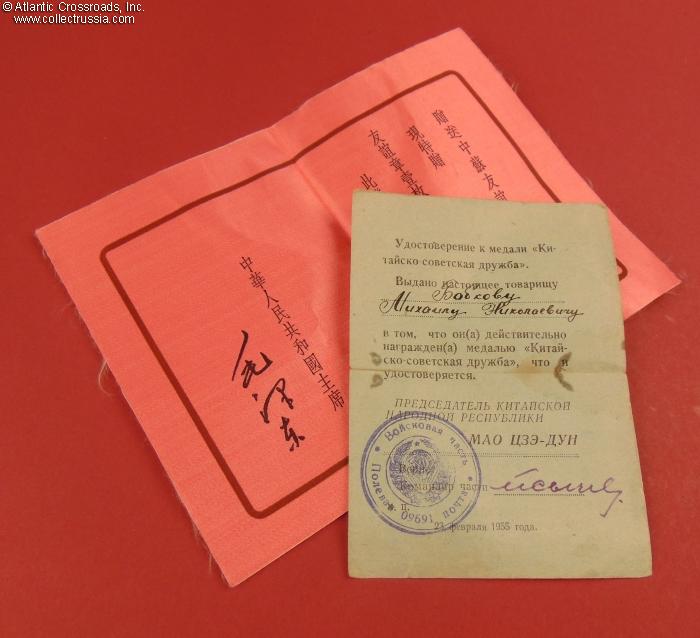 © Atlantic Crossroads, Inc.
www.collectrussia.com
贈送中蘇友誼
現特贈
友誼章壹枚
此
中華人民共和國主席
毛澤东
Удостоверение к медали «Ки-
тайско-советская дружба».
Выдано настоящее товарищу
Бобкову
Михаилу Николаевичу
в том, что он(а) действительно
награжден(а) медалью «Китай-
ско-советская дружба», что и
удостоверяется.
ПРЕДСЕДАТЕЛЬ КИТАЙСКОЙ
НАРОДНОЙ РЕСПУБЛИКИ
МАО ЦЗЭ-ДУН
Командир части
п.
23 февраля 1955 года.
Войсковая часть
Полевая почта 09691